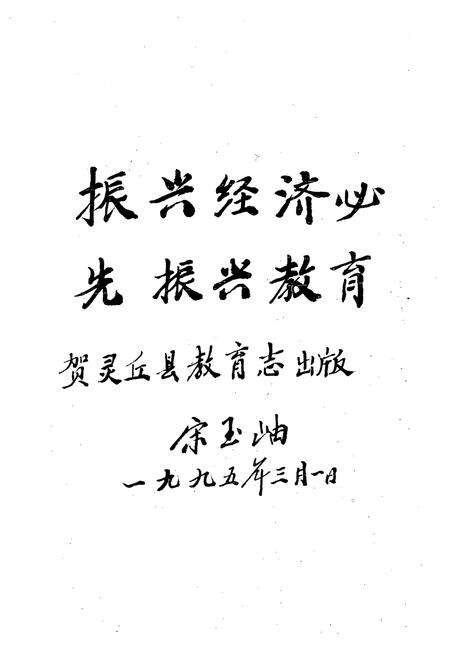 振兴经济必
先振兴教育
贺灵丘县教育志出版
宋玉岫
一九九五年三月一日